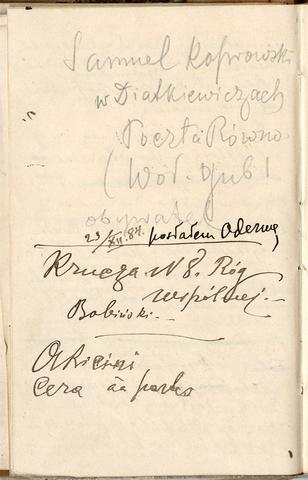 Samuel Koprowski
w Diatkiewiczach
Poczta Równo
(Wół. gub
obywatel
23/XII.84. posłałem Odezwę
Krucza N 8. Róg
wspólnej.—
Babiński.—
Cera āā partes